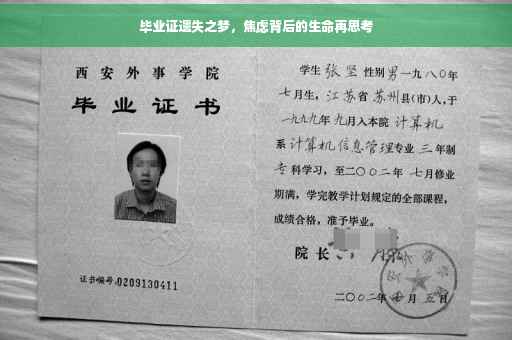 毕业证遗失之梦，焦虑背后的生命再思考
西安外事学院
毕业证书
证书编号:0209130411
学生 张坚 性别 男 一九八〇年
七月生，江苏省苏州县(市)人，于
一九九九年九月入本院 计算机
系 计算机信息管理专业 三年制
专科学习，至二〇〇二年七月修业
期满，学完教学计划规定的全部课程，
成绩合格，准予毕业。
院长
二〇〇二年 月五日